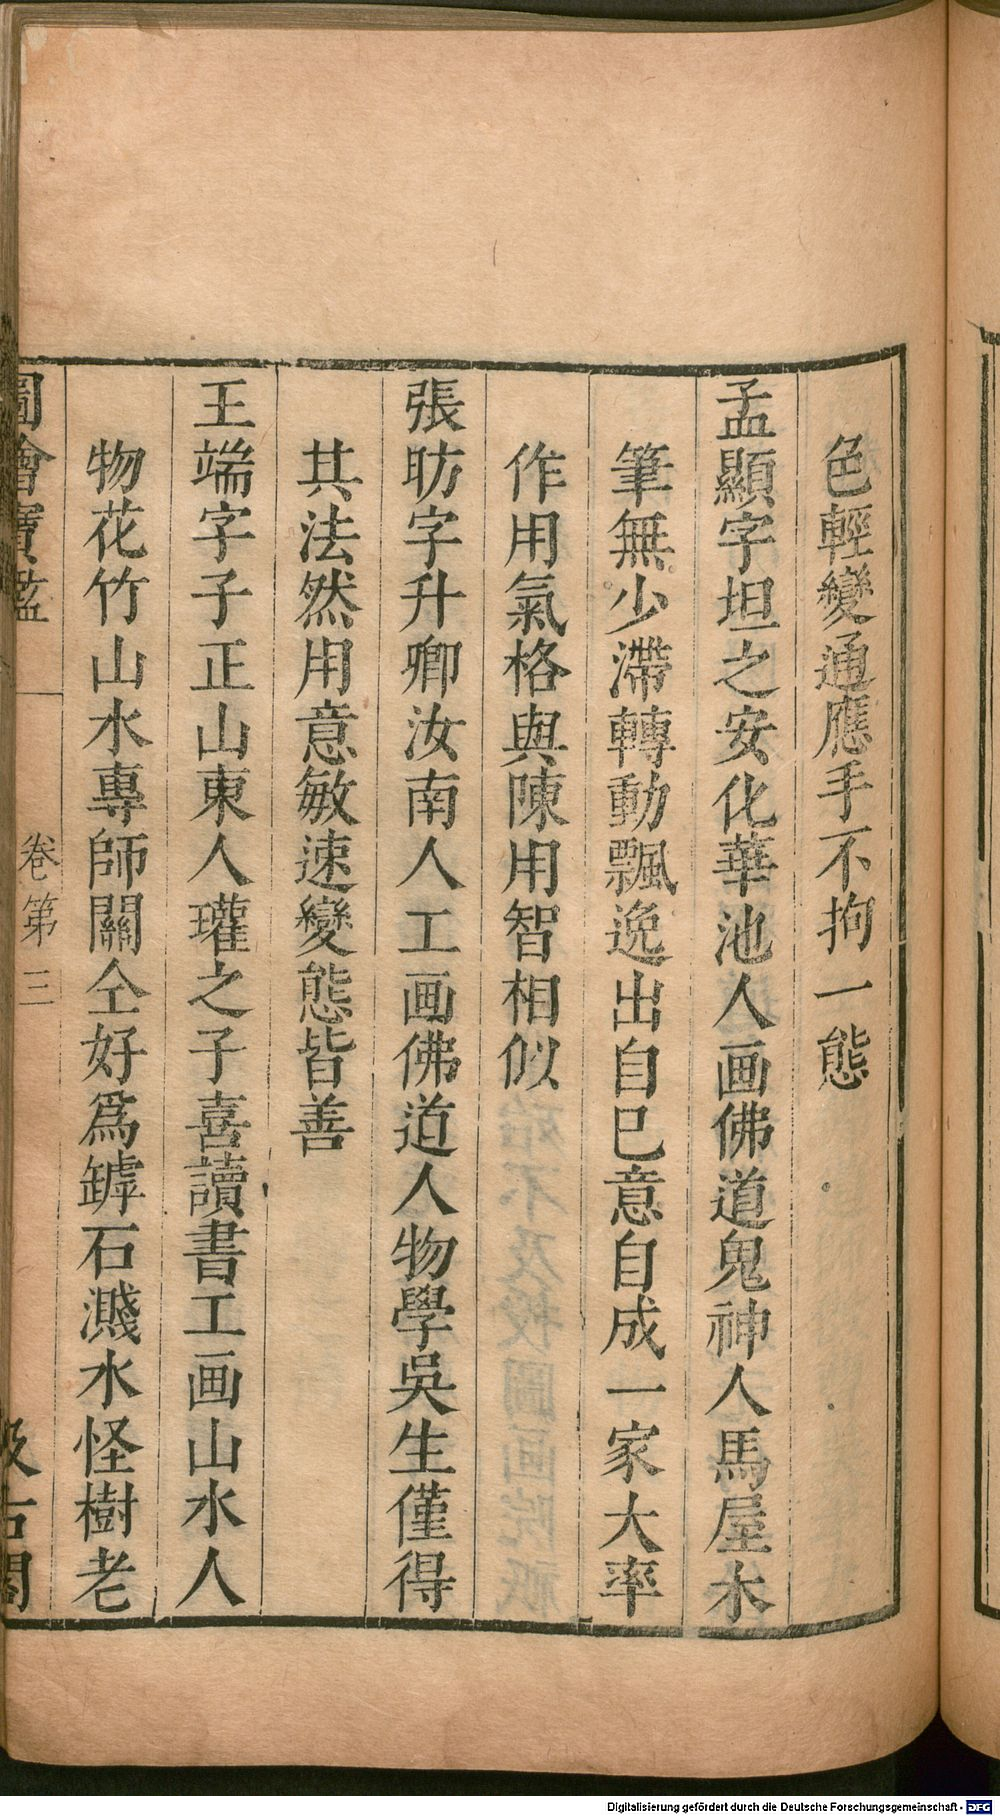 色輕變通應手不拘一態
孟顯字坦之安化華池人画佛道鬼神人馬屋木
筆無少滯轉動飄逸出自巳意自成一家大率
作用氣格與陳用智相似
張昉字升卿汝南人工画佛道人物學吳生僅得
其法然用意敏速變態皆善
王端字子正山東人瓘之子喜讀書工画山水人
物花竹山水專師關仝好爲罅石濺水怪樹老
圖繪寶鑑 卷第三 汲古閣
Digitalisierung gefördert durch die Deutsche Forschungsgemeinschaft - DFG